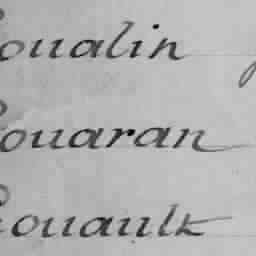 oualin
ouaran
ouault